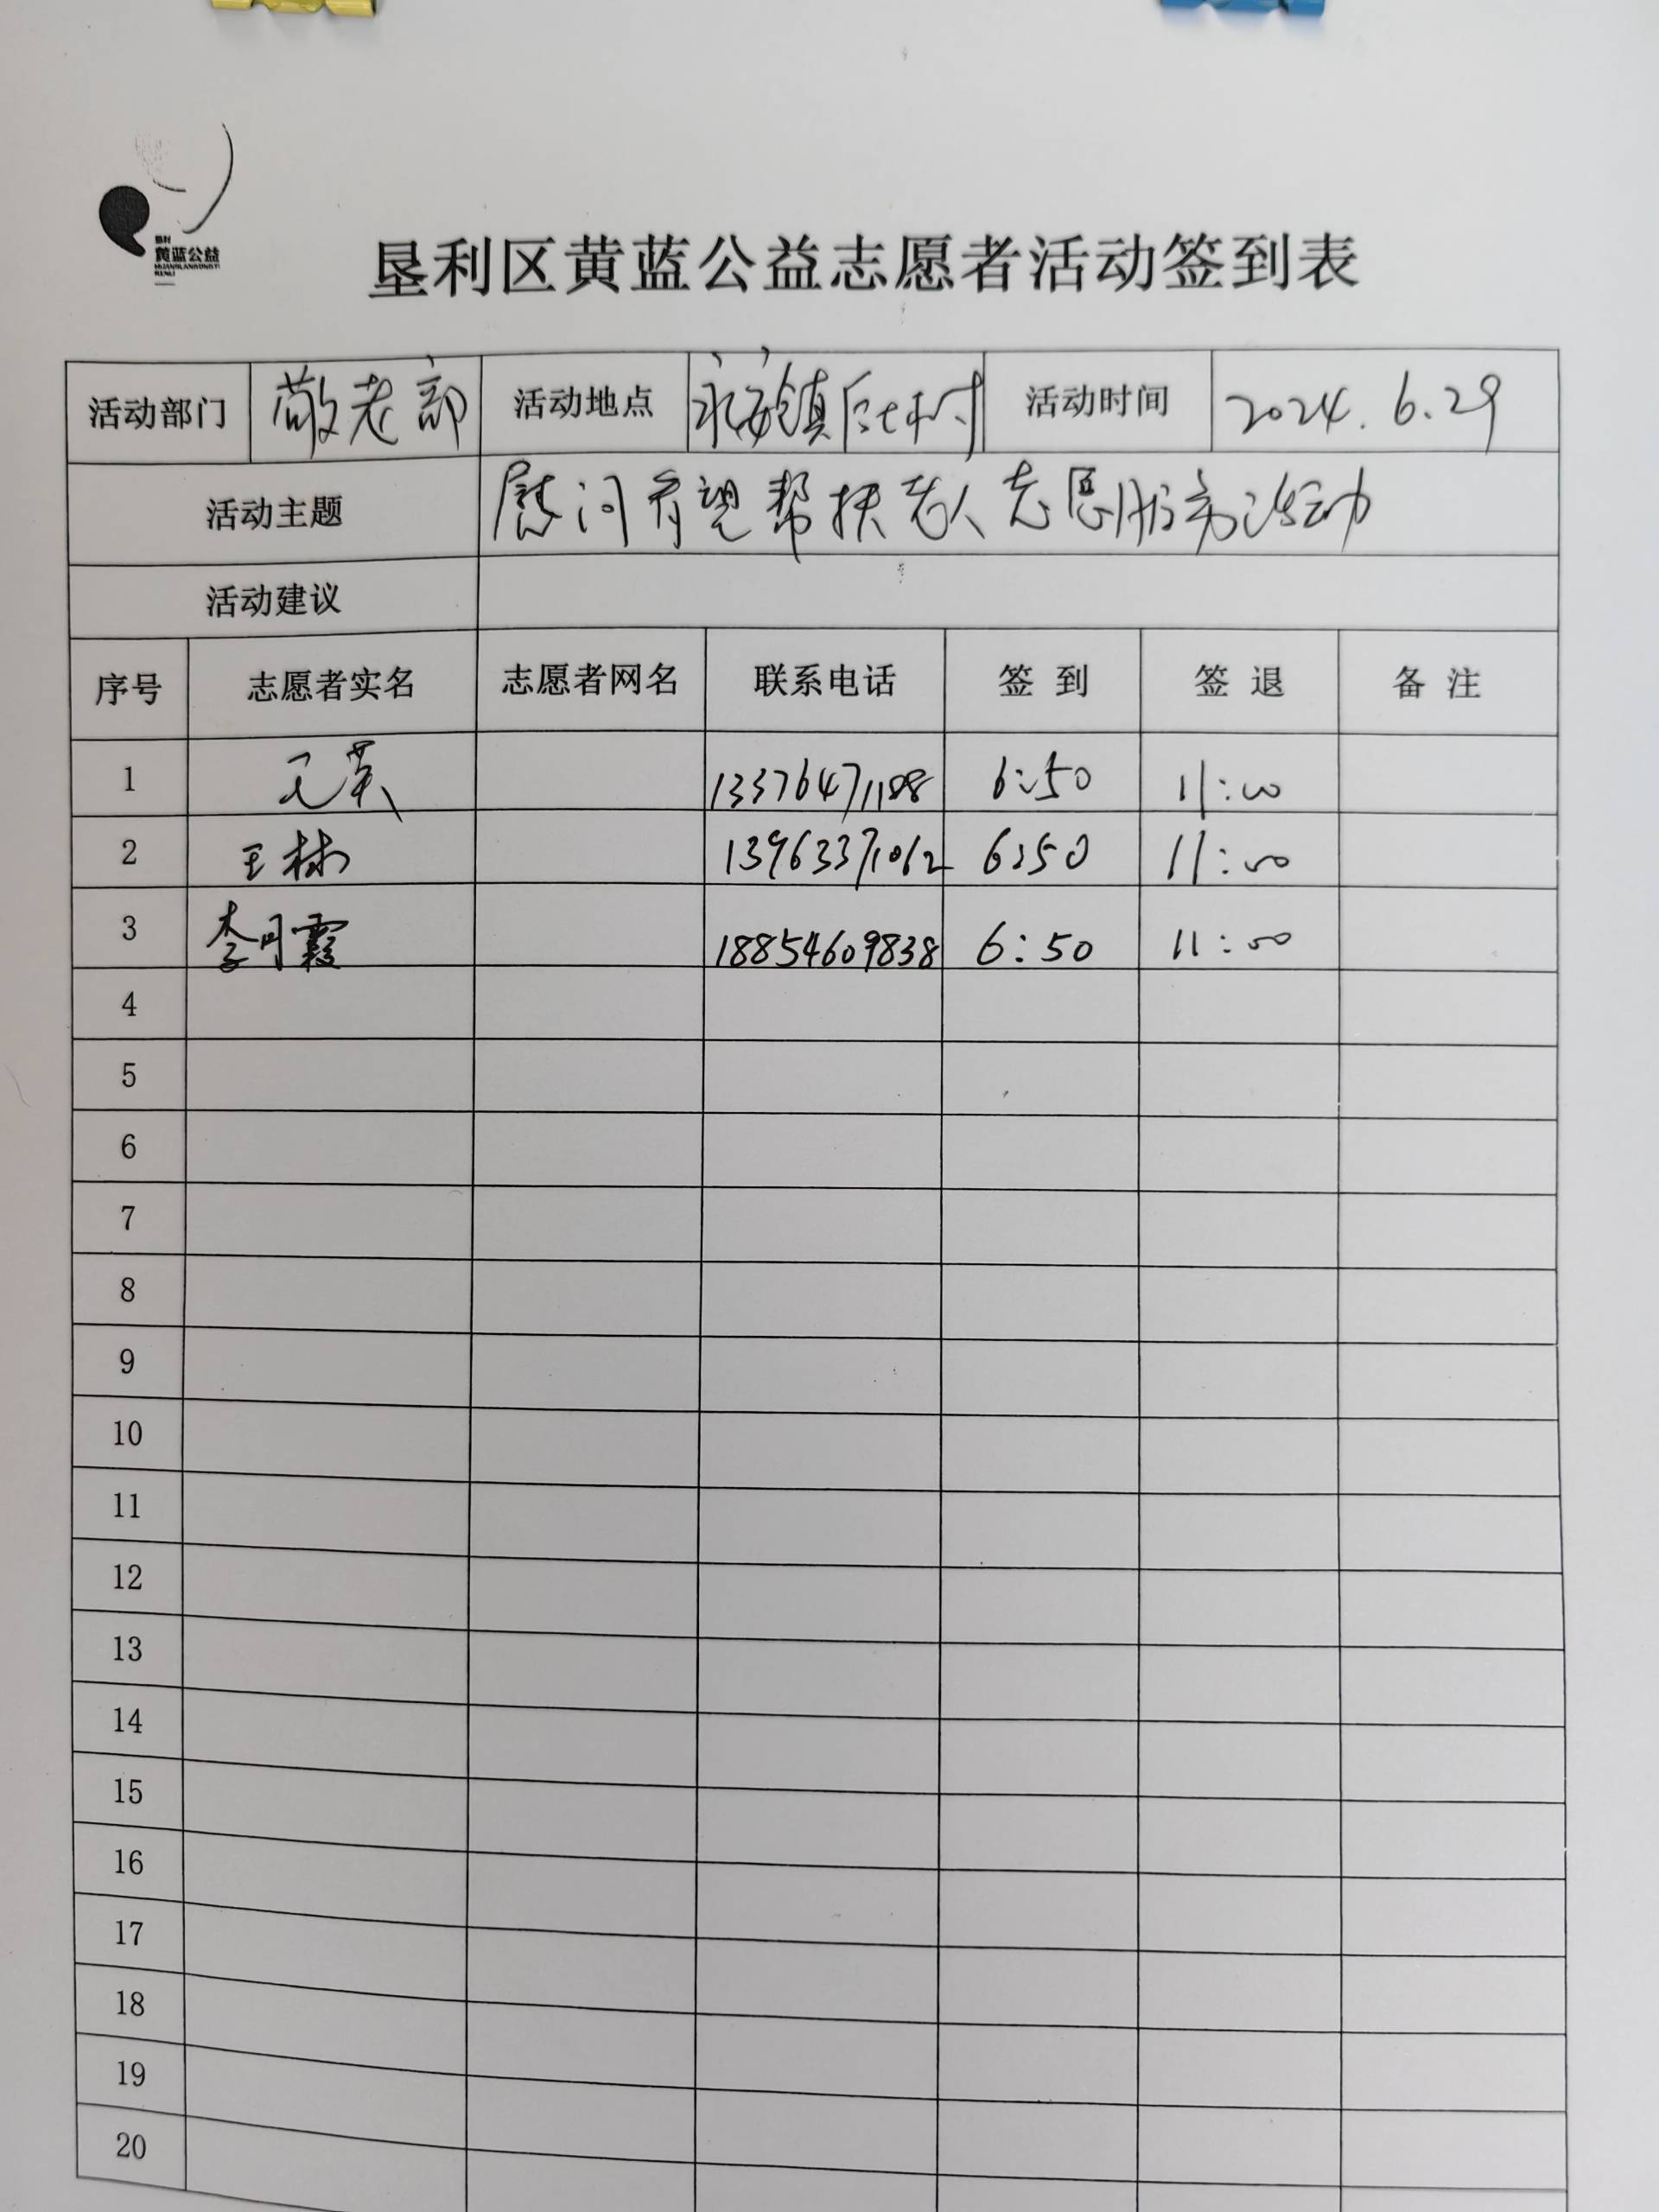 垦利
黄蓝公益
垦利区黄蓝公益志愿者活动签到表
活动部门 敬老部 活动地点 永安镇后七村 活动时间 2024.6.29
活动主题 慰问看望帮扶老人志愿服务活动
活动建议
序号 志愿者实名 志愿者网名 联系电话 签 到 签 退 备 注
1 王英 13376471108 6:50 11:00
2 王林 13963371062 6:50 11:00
3 李月霞 18854609838 6:50 11:00
4
5
6
7
8
9
10
11
12
13
14
15
16
17
18
19
20